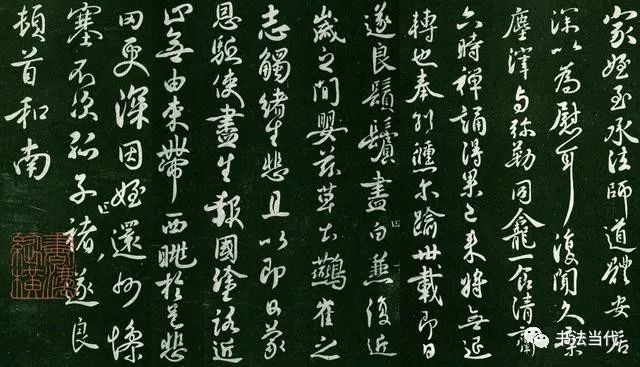 家姪至承法師道體安居
深以為慰耳復聞久棄
塵滓与弥勒同龕一食清齋
六時禪誦得果已來將無退
轉也奉別倏尔踰卅載即日
遂良鬚鬢盡白兼復近
歲之間嬰茲草土鷰雀之
志觸緒生悲且以即日蒙
恩驅使盡生報國塗路近
止無由束帶西眺於邑悲
罔更深因姪還州慘
塞不次孤子褚遂良
頓首和南
書法
縱橫
书法当代